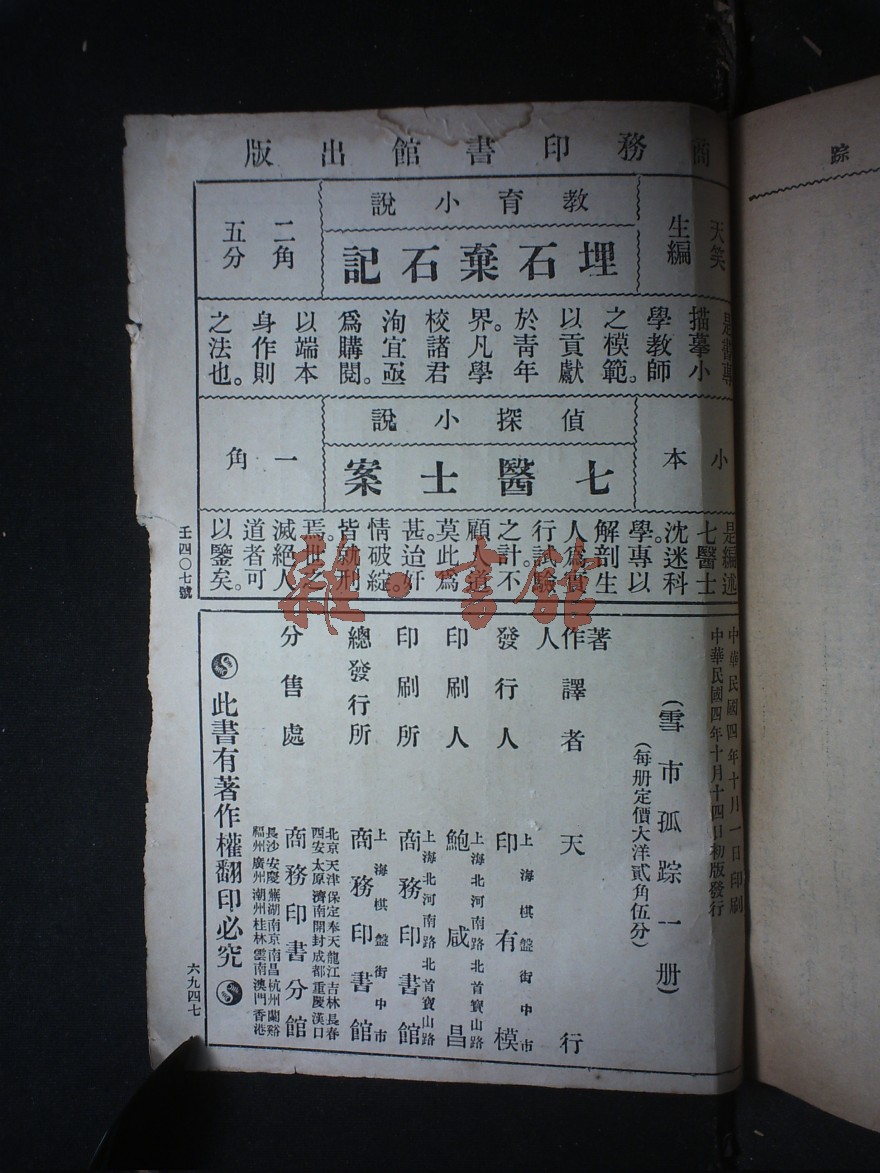 商務印書館出版
天笑
生編
教育小說
埋石棄石記
二角
五分
是書專
描摹小
學教師
之模範。
以貢獻
於青年
界。凡學
校諸君
洵宜亟
爲購閱。
以端本
身作則
之法也。
小本
偵探小說
七醫士案
一角
是編述
七醫士
沈迷科
學。專以
解剖生
人爲實
行試驗
之計。不
顧人道
莫此爲
甚。迨奸
情破綻。
皆就刑
焉。世之
滅絕人
道者可
以鑒矣。
壬四〇七號
中華民國四年十月一日印刷
中華民國四年十月十四日初版發行
(雪市孤踪一册)
(每册定價大洋貳角伍分)
著作人
譯者 天行
發行人 印有模
上海棋盤街中市
印刷人 鮑咸昌
上海北河南路北首寶山路
印刷所 商務印書館
上海北河南路北首寶山路
總發行所 商務印書館
上海棋盤街中市
分售處 商務印書分館
北京天津保定奉天龍江吉林長春
西安太原濟南開封成都重慶漢口
長沙安慶蕪湖南京南昌杭州蘭谿
福州廣州潮州桂林雲南澳門香港
此書有著作權翻印必究
六九四七
踪
雜·書館